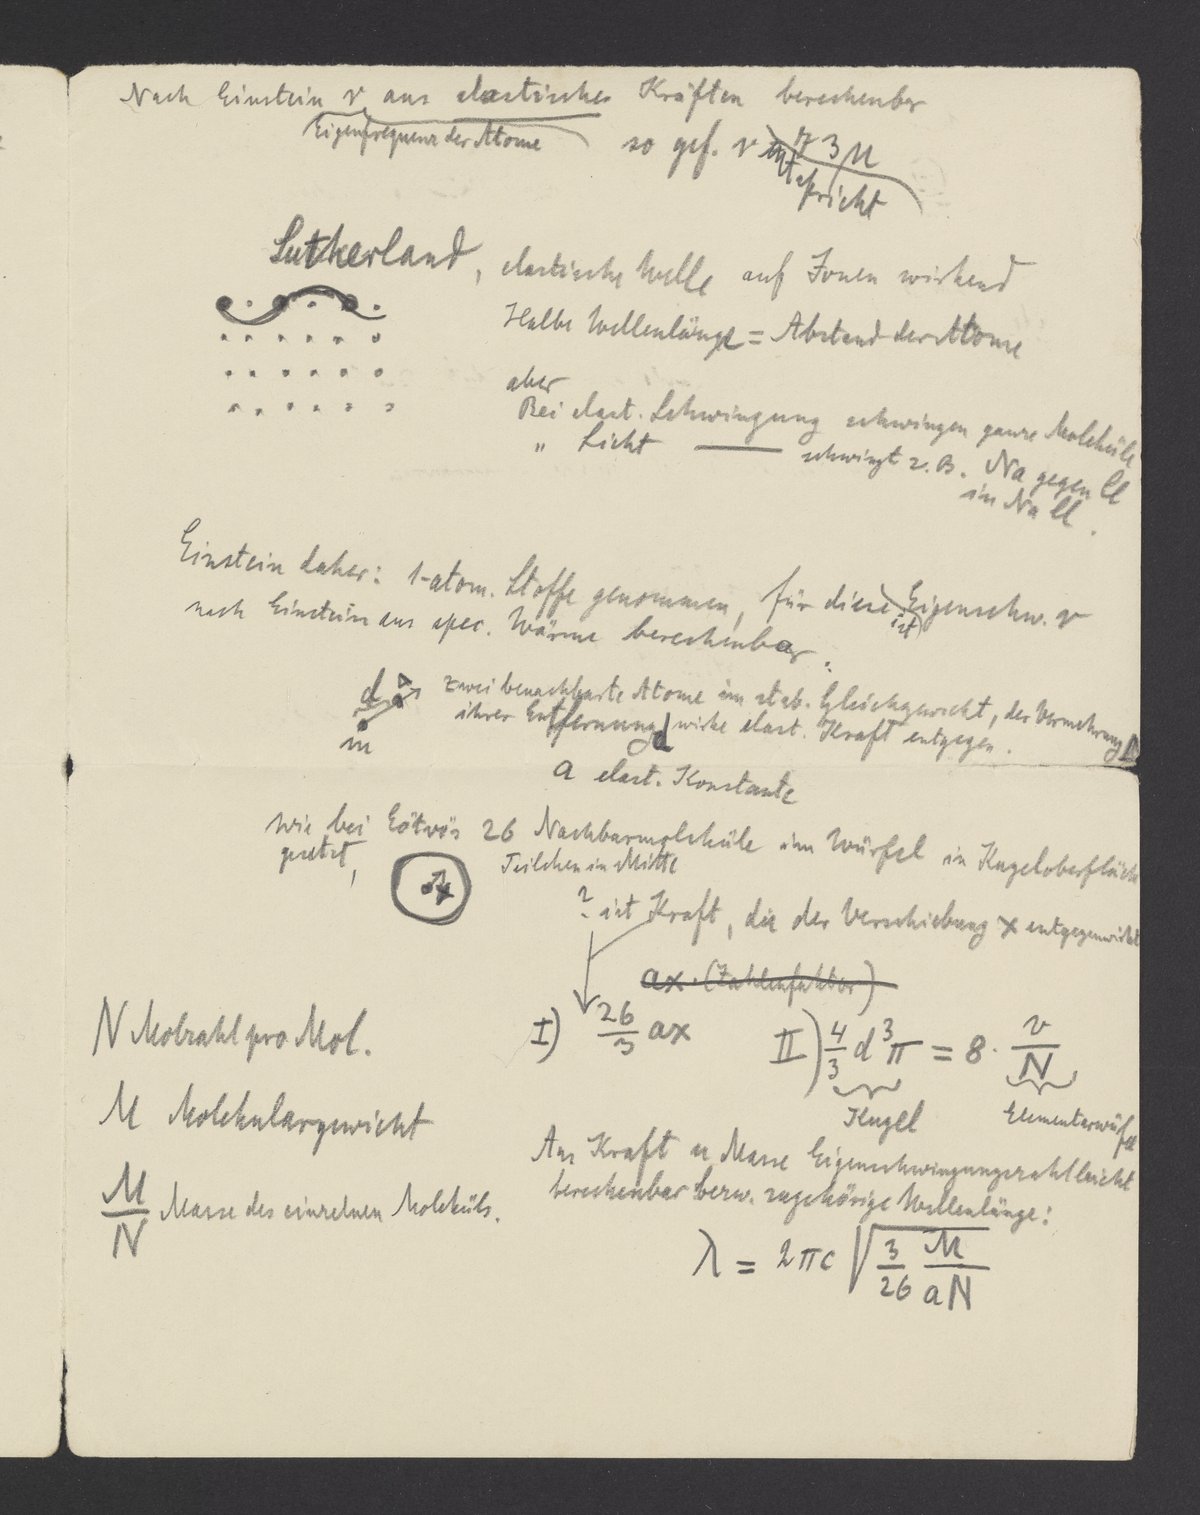 Nach Einstein ν aus elastischen Kräften berechenbar
Eigenfrequenz der Atome
so gef. ν entspricht 3 μ
Sutherland, elastische Welle auf Ionen wirkend
Halbe Wellenlänge = Abstand der Atome
aber
Bei elast. Schwingung schwingen ganze Moleküle
" Licht —— schwingt z. B. Na gegen Cl
in Na Cl.
Einstein daher: 1-atom. Stoffe genommen, für diese ist Eigenschw. ν
nach Einstein aus spec. Wärme berechenbar.
d
m
zwei benachbarte Atome im stab. Gleichgewicht, der Vermehrung Δ
ihrer Entfernung d wirke elast. Kraft entgegen.
a elast. Konstante
wie bei Eötvös 26 Nachbarmoleküle im Würfel in Kugeloberfläche
gesetzt,
Teilchen in Mitte
x
? ist Kraft, die der Verschiebung x entgegenwirkt
ax · (Zahlenfaktor)
I) 26/3 ax
II) 4/3 d³π = 8 · v/N
Kugel
Elementarwürfel
N Molzahl pro Mol.
M Molekulargewicht
M/N Masse des einzelnen Moleküls.
Aus Kraft u Masse Eigenschwingungszahl leicht
berechenbar bezw. zugehörige Wellenlänge:
λ = 2πc √(3/26 M/aN)